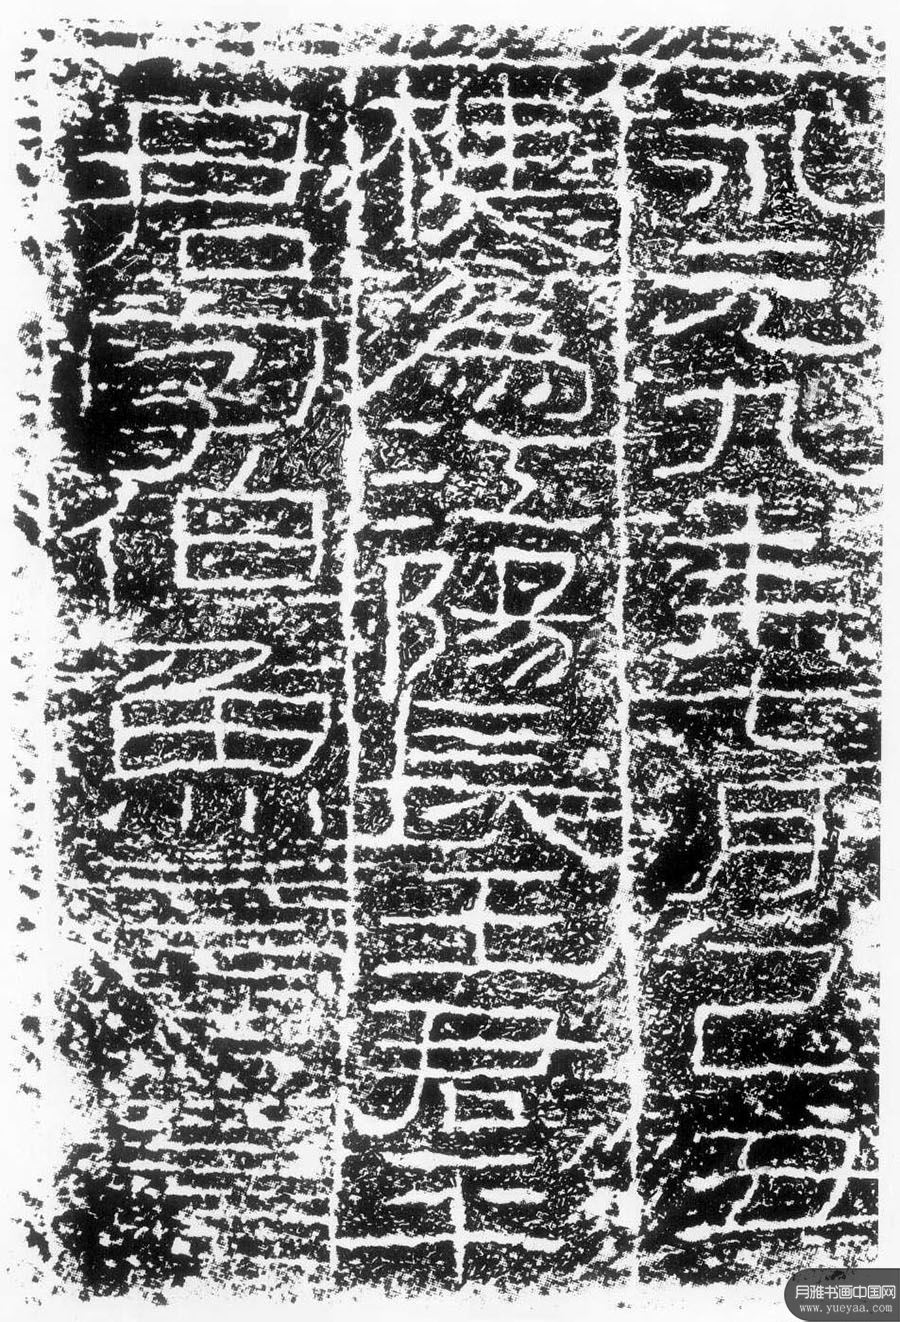 永元九年七月己丑
楗為江陽長王君平
君字伯魚
月雅书画中国网
www.yueyaa.com